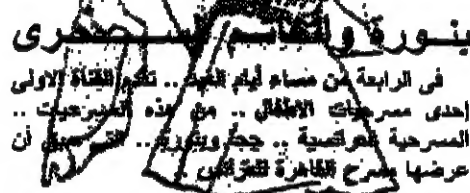 بنـورة السـحرى
فى الرابعة من مساء أيام العيد .. تقدم القناة الاولى
إحدى مسرحيات الاطفال .. من هذه المسرحيات ..
المسرحية .. جحا وبنورة .. التى سبق أن
عرضها مسرح القاهرة للعرائس .